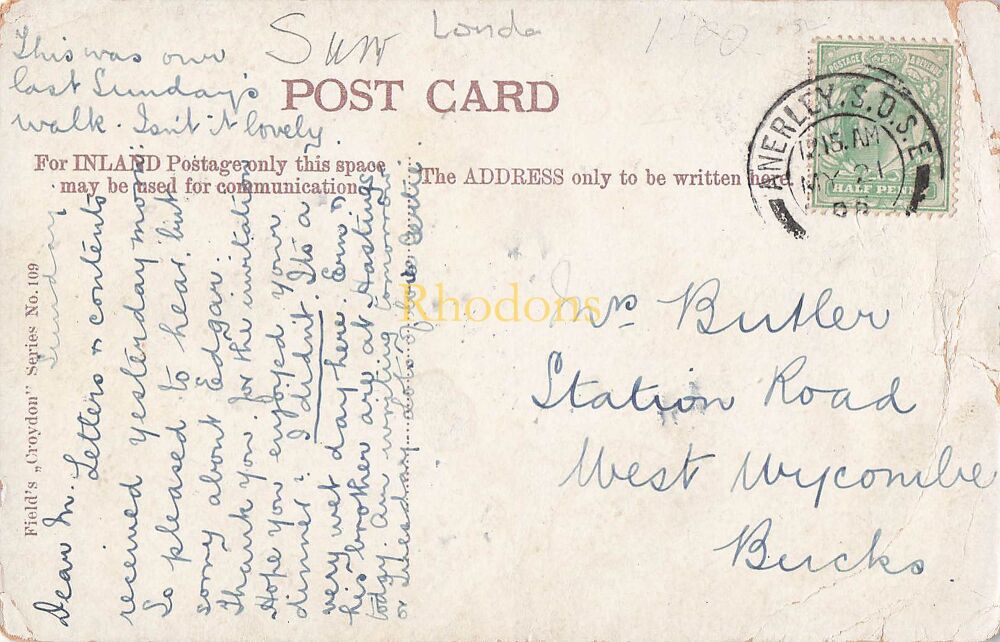 This was our
last Sunday's
walk. Isn't it lovely
Surr
Londo
POST CARD
For INLAND Postage only this space
may be used for communication.
The ADDRESS only to be written here.
POSTAGE & REVENUE
HALF PENNY
ANERLEY. S.O. S.E
12 15. AM
MY 21
06
Field's „Croydon" Series No. 109
Sunday
Dear M. Letters & contents
received yesterday morn
So pleased to hear, but
sorry about Edgar.
Thank you for the invitation
Hope you enjoyed your
dinner? I didn't. It's a
very wet day here. Ern &
his brother are at Hastings
today. Am writing tomorrow
or Tuesday. Lots of love Gertie
Mr Butler
Station Road
West Wycombe
Bucks.
Rhodons